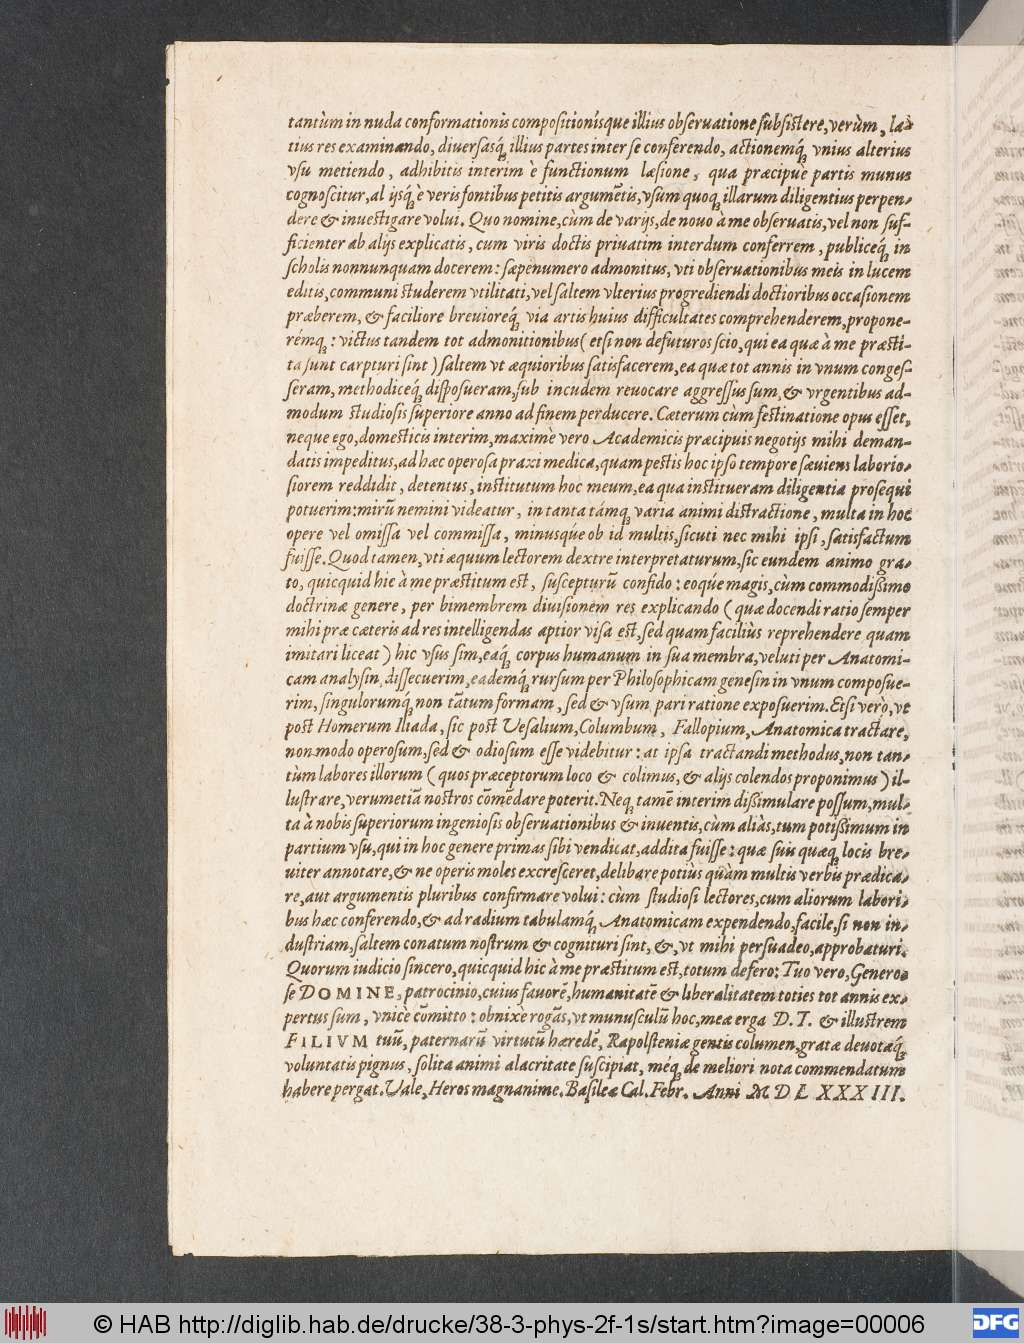 tantùm in nuda conformationis compositionísque illius obseruatione subsistere, verùm, la-
tius res examinando, diuersasq́; illius partes inter se conferendo, actionemq́; vnius alterius
vsu metiendo, adhibitis interim è functionum læsione, qua præcipuè partis munus
cognoscitur, alijsq́; è veris fontibus petitis argumētis, vsum quoq; illarum diligentius perpen-
dere & inuestigare volui. Quo nomine, cùm de varijs, de nouo à me obseruatis, vel non suf-
ficienter ab alijs explicatis, cum viris doctis priuatim interdum conferrem, publiceq́; in
scholis nonnunquam docerem: sæpenumero admonitus, vti obseruationibus meis in lucem
editis, communi studerem vtilitati, vel saltem vlterius progrediendi doctioribus occasionem
præberem, & faciliore breuioreq́; via artis huius difficultates comprehenderem, propone-
rémq;: victus tandem tot admonitionibus (etsi non defuturos scio, qui ea quæ à me præsti-
ta sunt carpturi sint) saltem vt æquioribus satisfacerem, ea quæ tot annis in vnum conges-
seram, methodiceq́; disposueram, sub incudem reuocare aggressus sum, & vrgentibus ad-
modum studiosis superiore anno ad finem perducere. Cæterum cùm festinatione opus esset,
neque ego, domesticis interim, maximè vero Academicis præcipuis negotijs mihi deman-
datis impeditus, ad hæc operosa praxi medica, quam pestis hoc ipso tempore sæuiens laborio-
siorem reddidit, detentus, institutum hoc meum, ea qua institueram diligentia prosequi
potuerim: mirū nemini videatur, in tanta támq; varia animi distractione, multa in hoc
opere vel omissa vel commissa, minusqúe ob id multis, sicuti nec mihi ipsi, satisfactum
fuisse. Quod tamen, vti æquum lectorem dextre interpretaturum, sic eundem animo gra-
to, quicquid hic à me præstitum est, suscepturū confido: eoqúe magis, cùm commodißimo
doctrinæ genere, per bimembrem diuisionem res explicando (quæ docendi ratio semper
mihi præ cæteris ad res intelligendas aptior visa est, sed quam faciliùs reprehendere quam
imitari liceat) hic vsus sim, eaq́; corpus humanum in sua membra, veluti per Anatomi-
cam analysin, dissecuerim, eademq́; rursum per Philosophicam genesin in vnum composue-
rim, singulorumq́; non tātum formam, sed & vsum pari ratione exposuerim. Etsi verò, vt
post Homerum Iliada, sic post Vesalium, Columbum, Fallopium, Anatomica tractare,
non modo operosum, sed & odiosum esse videbitur: at ipsa tractandi methodus, non tan-
tùm labores illorum (quos præceptorum loco & colimus, & alijs colendos proponimus) il-
lustrare, verumetiā nostros cōmēdare poterit. Neq; tamē interim dißimulare possum, mul-
ta à nobis superiorum ingeniosis obseruationibus & inuentis, cùm aliàs, tum potißimum in
partium vsu, qui in hoc genere primas sibi vendicat, addita fuisse: quæ suis quæq; locis bre-
uiter annotare, & ne operis moles excresceret, delibare potiùs quàm multis verbis prædica-
re, aut argumentis pluribus confirmare volui: cùm studiosi lectores, cum aliorum labori-
bus hæc conferendo, & ad radium tabulamq́; Anatomicam expendendo, facile, si non in-
dustriam, saltem conatum nostrum & cognituri sint, &, vt mihi persuadeo, approbaturi.
Quorum iudicio sincero, quicquid hic à me præstitum est, totum defero: Tuo vero, Genero-
se DOMINE, patrocinio, cuius fauorē, humanitatē & liberalitatem toties tot annis ex-
pertus sum, vnicè cōmitto: obnixè rogās, vt munusculū hoc, meæ erga D. T. & illustrem
FILIVM tuū, paternarū virtutū hæredē, Rapolsteniæ gentis columen, gratæ deuotæq́;
voluntatis pignus, solita animi alacritate suscipiat, méq; de meliori nota commendatum
habere pergat. Vale, Heros magnanime. Basileæ Cal. Febr. Anni MDLXXXIII.
© HAB http://diglib.hab.de/drucke/38-3-phys-2f-1s/start.htm?image=00006
DFG